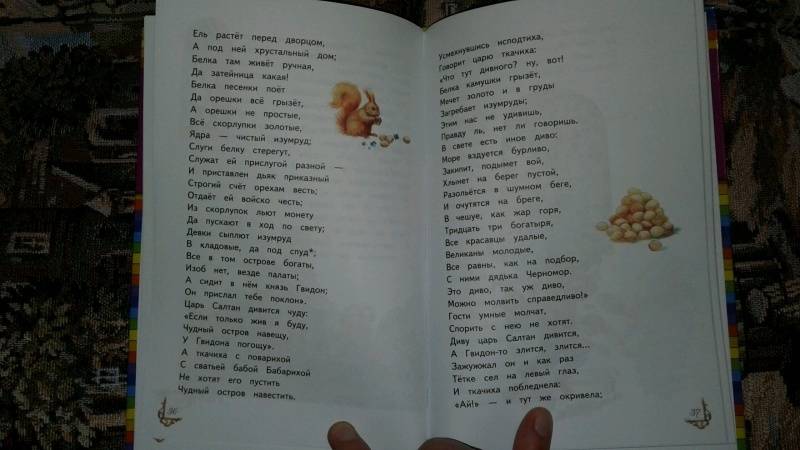 Ель растёт перед дворцом,
А под ней хрустальный дом;
Белка там живёт ручная,
Да затейница какая!
Белка песенки поёт
Да орешки всё грызёт,
А орешки не простые,
Всё скорлупки золотые,
Ядра — чистый изумруд;
Слуги белку стерегут,
Служат ей прислугой разной —
И приставлен дьяк приказный
Строгий счёт орехам весть;
Отдаёт ей войско честь;
Из скорлупок льют монету
Да пускают в ход по свету;
Девки сыплют изумруд
В кладовые, да под спуд*;
Все в том острове богаты,
Изоб нет, везде палаты;
А сидит в нём князь Гвидон;
Он прислал тебе поклон».
Царь Салтан дивится чуду:
«Если только жив я буду,
Чудный остров навещу,
У Гвидона погощу».
А ткачиха с поварихой
С сватьей бабой Бабарихой
Не хотят его пустить
Чудный остров навестить.
36
Усмехнувшись исподтиха,
Говорит царю ткачиха:
«Что тут дивного? ну, вот!
Белка камушки грызёт,
Мечет золото и в груды
Загребает изумруды;
Этим нас не удивишь,
Правду ль, нет ли говоришь.
В свете есть иное диво:
Море вздуется бурливо,
Закипит, подымет вой,
Хлынет на берег пустой,
Разольётся в шумном беге,
И очутятся на бреге,
В чешуе, как жар горя,
Тридцать три богатыря,
Все красавцы удалые,
Великаны молодые,
Все равны, как на подбор,
С ними дядька Черномор.
Это диво, так уж диво,
Можно молвить справедливо!»
Гости умные молчат,
Спорить с нею не хотят.
Диву царь Салтан дивится,
А Гвидон-то злится, злится...
Зажужжал он и как раз
Тётке сел на левый глаз,
И ткачиха побледнела:
«Ай!» — и тут же окривела;
37